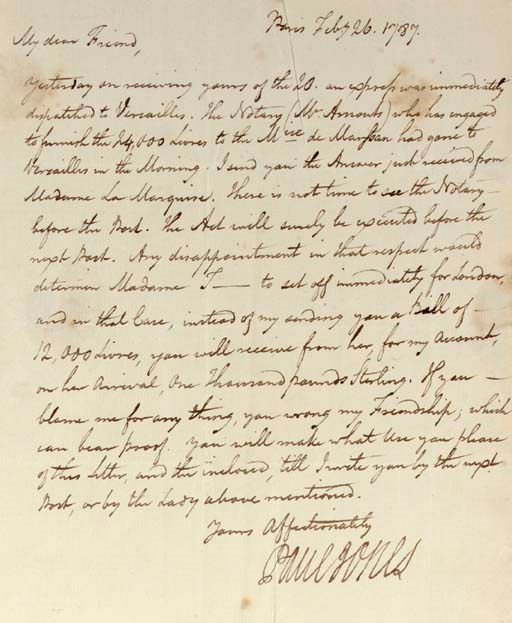 Paris Feby 26. 1787.
My dear Friend,
Yesterday on receiving yours of the 20. an express was immediately
dispatched to Versailles. The Notary (Mr. Arnouts) who has engaged
to furnish the 24,000 Livres to the Mise de Marsan had gone to
Versailles in the Morning. I send you the Answer just received from
Madame La Marquise. There is not time to see the Notary
before the Post. The Act will surely be executed before the
next Post. Any disappointment in that respect would
determine Madame T—— to set off immediately for London,
and in that Case, instead of my sending you a Bill of —
12,000 Livres, you will receive from her, for my Account,
on her Arrival, One thousand pounds Sterling. If you —
blame me for any thing, you wrong my Friendship; which
can bear proof. You will make what Use you please
of this Letter, and the inclosed, till I write you by the next
Post, or by the Lady above mentioned.
Yours Affectionately
Paul Jones